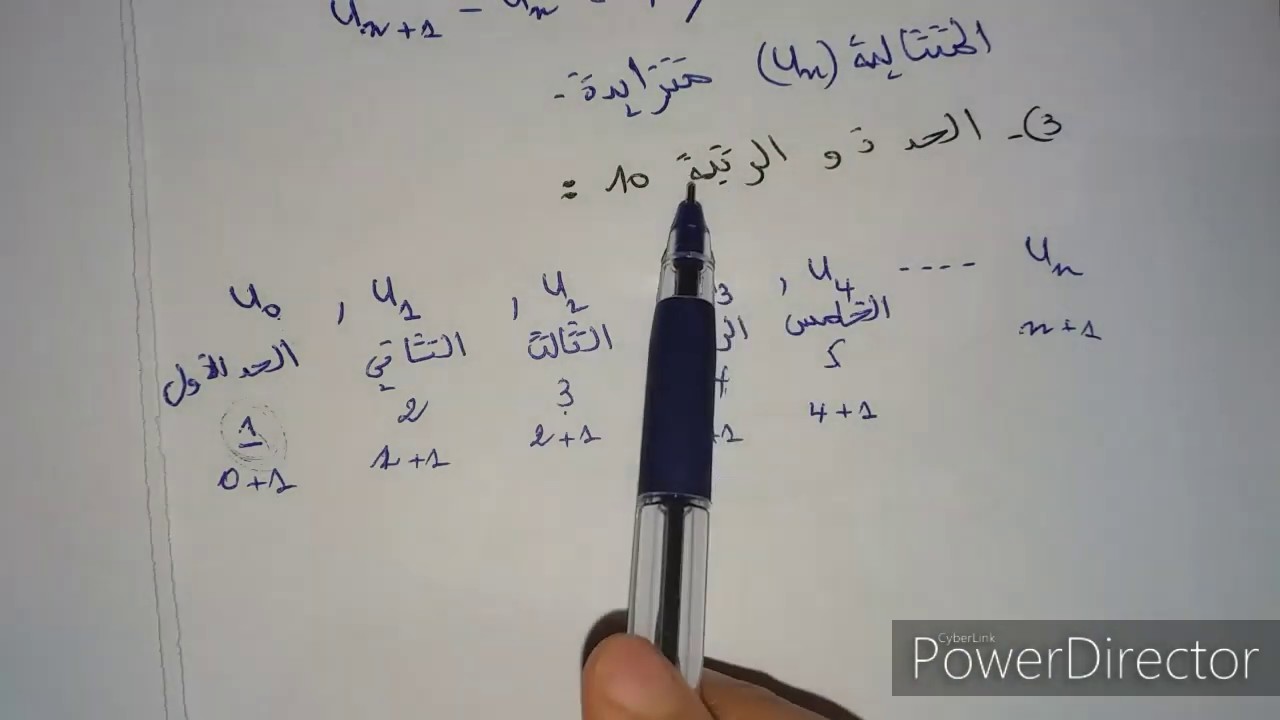 U_{n+1} - U_n
المتتالية (U_n) متزايدة.
3)- الحد ذ و الرتبة 10 :
U_0 , U_1 , U_2 3 , U_4 ---- U_n
الحد الأول الثاني الثالث الخامس n+1
1 2 3 5
0+1 1+1 2+1 +1 4+1
CyberLink
PowerDirector